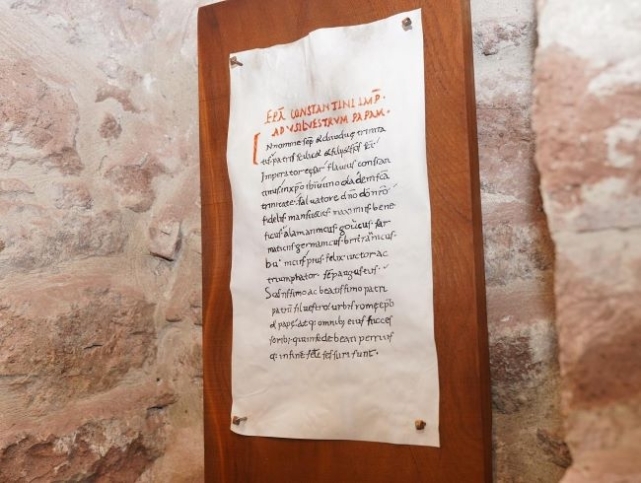 EPĪA CONSTANTINI IMP̄.
AD VSILVESTRVM PAPAM.
INnomine sc̄ę & indiuiduę trinita
tis patris scilicet & filii & sp̄s sc̄i
Imperator cęsar flauius constan
tinus inxpo ihū uno ex eadem sc̄a
trinitate saluatore dn̄o dō nr̄o
fidelis mansuetus maximus bene
ficus alamannicus goticus sar
maticus germanicus brittannicus
hunnicus pius felix uictor ac
triumphator semp augustus.
Sc̄issimo ac beatissimo patri
patrū siluestro urbis romę ep̄o
& papę atq: omnibus eius succes
soribus qui in sede beati petri usq:
in finem sc̄li sessuri sunt.